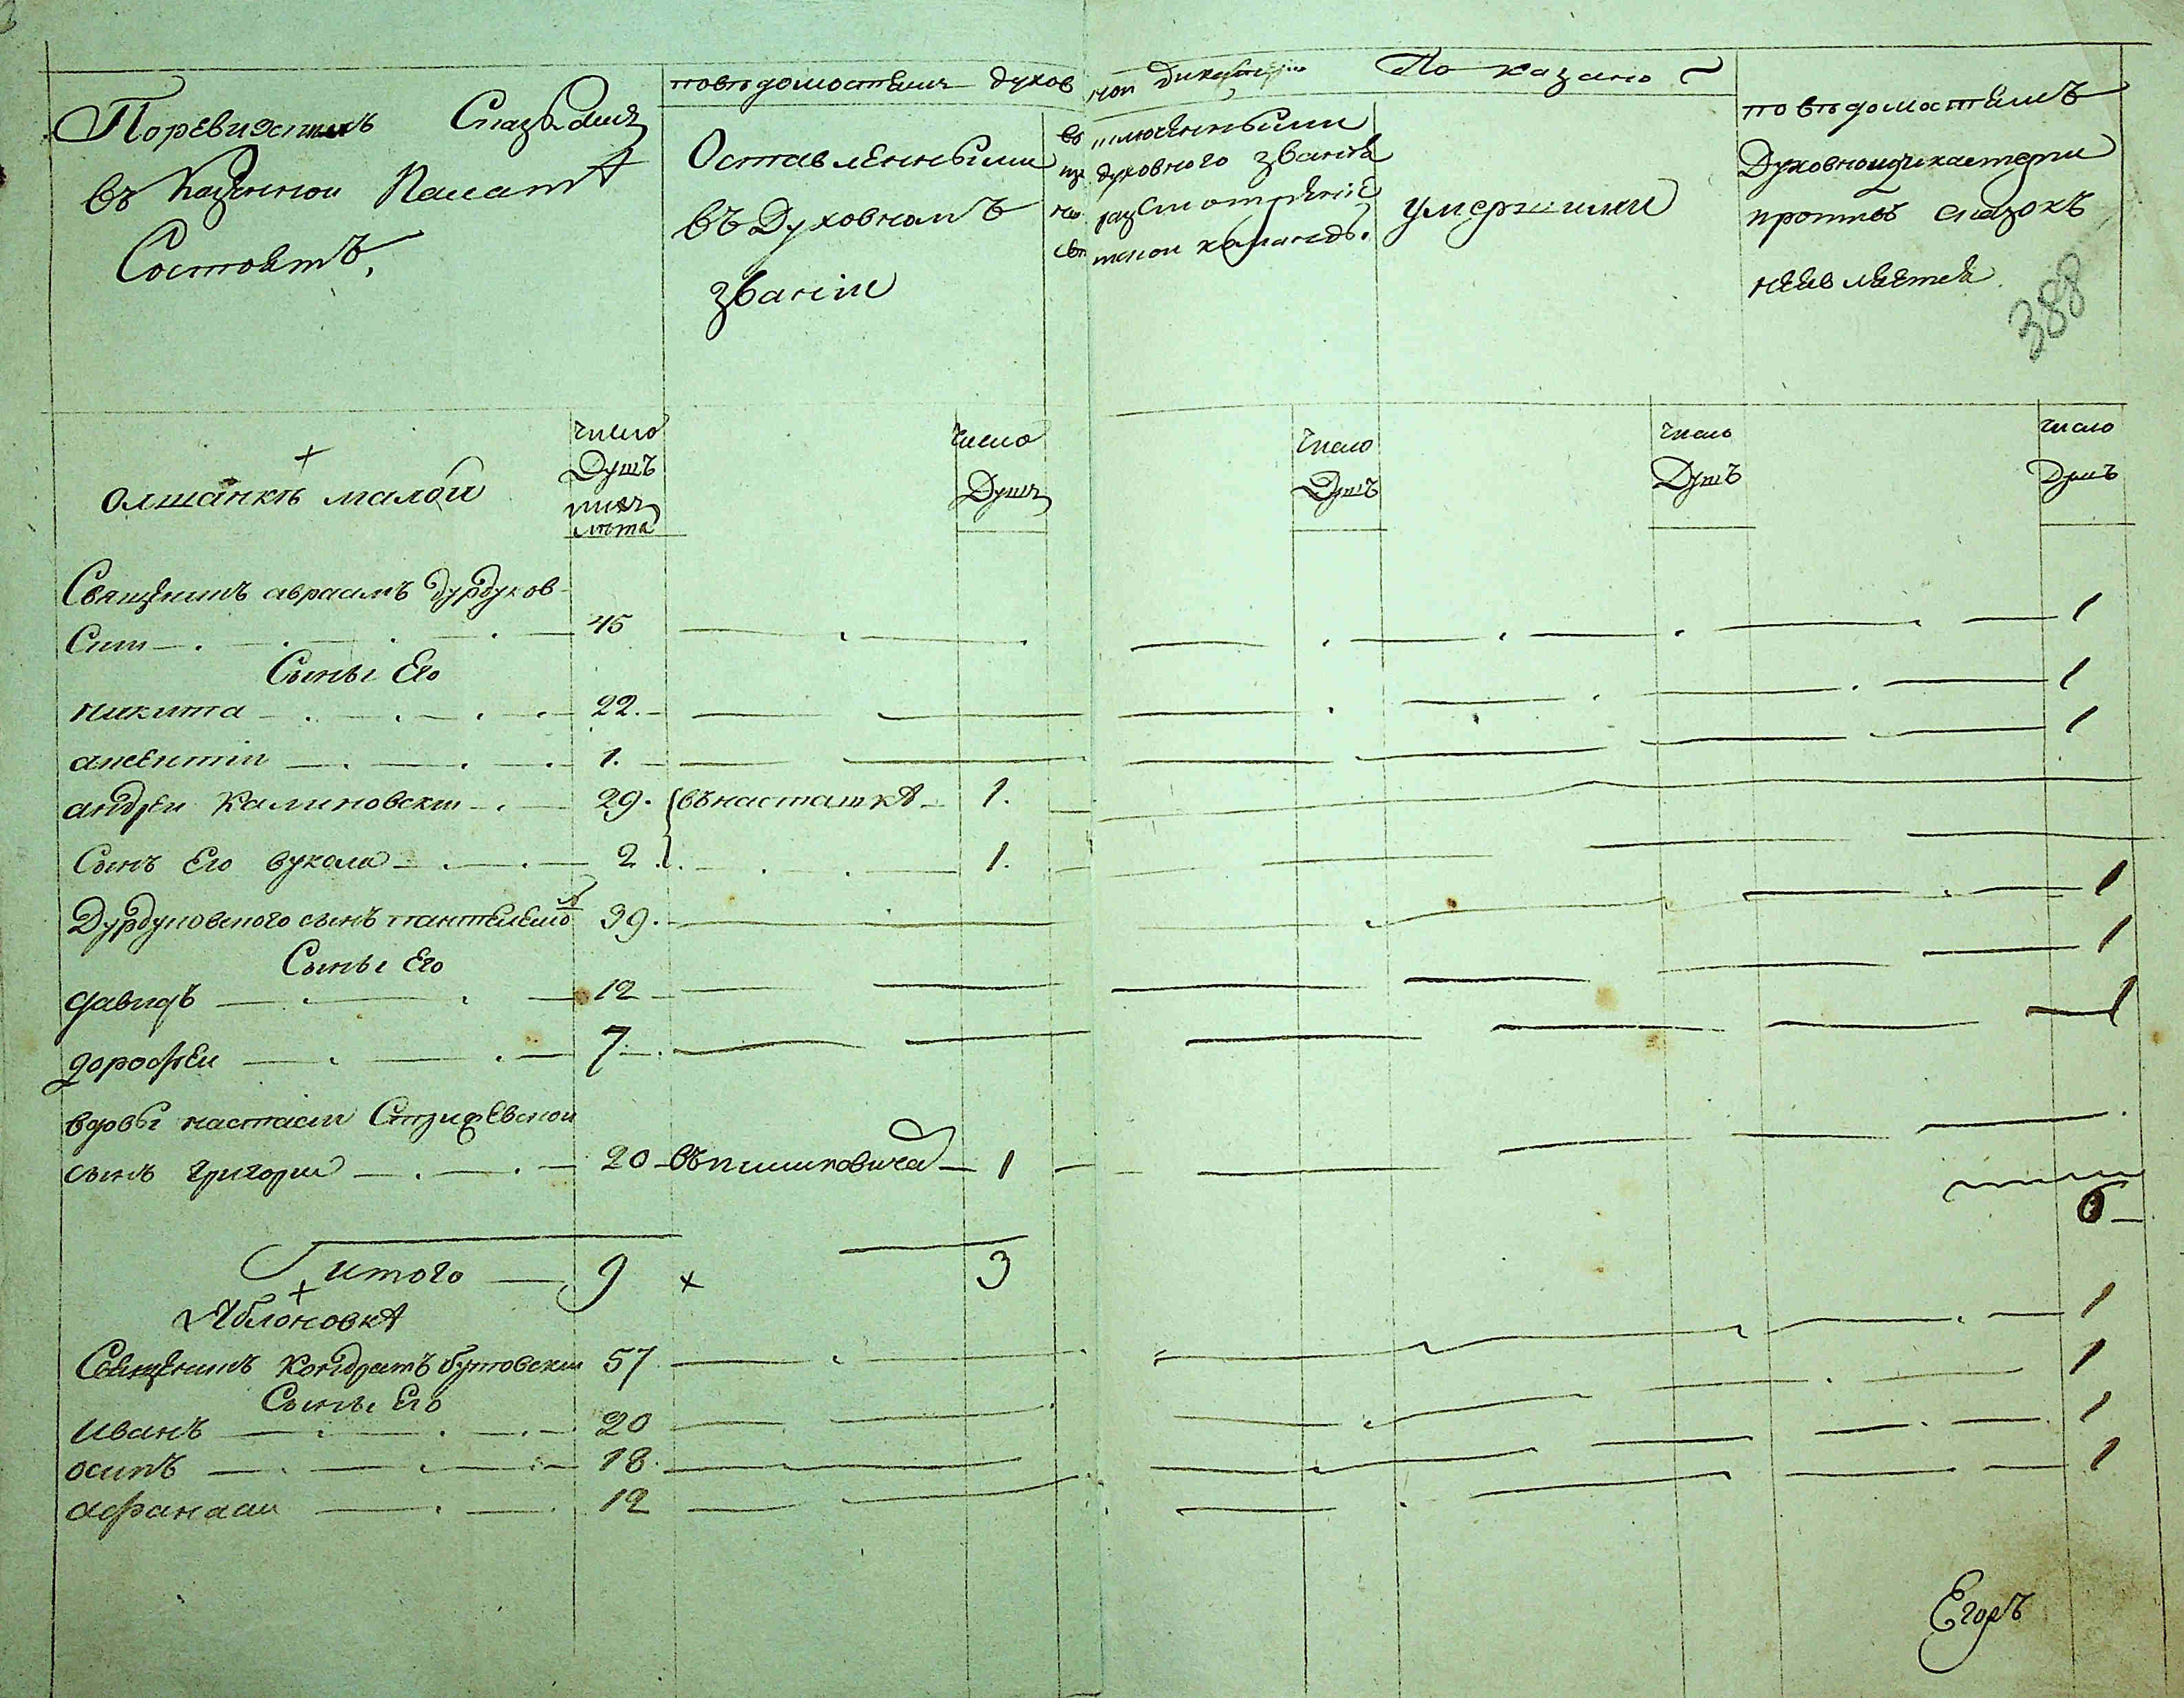 По ревизскимъ Сказкамъ
въ казенной Палатѣ
Состоятъ,
по вѣдомостямъ духов
ной Дикастерии По казано
Оставленными
въ Духовномъ
званіи
изключенными
из духовного званія
на разсмотрѣніе
свѣтской команды.
умершими
по вѣдомостямъ
Духовной дикастерии
противъ сказокъ
неявляется
388
олшанкѣ малой
число
Душъ
и ихъ
лѣта
число
Душъ
число
Душъ
число
Душъ
число
Душъ
Священникъ авраамъ Дурдуков
ский 45 1
Сыны Его
никита 22. 1
авксентий 1. 1
андрей Калиновский 29. въ насташкѣ 1.
Сынъ Его вукола 2. 1.
Дурдуковского сынъ пантелемо 39. 1
Сыны Его
давидъ 12 1
дорофей 7 1
вдовы настасии
сынъ григорий 20 въ 1
6
итого 9 3
Яблоновкѣ
Священникъ Кондратъ бутовский 57 1
Сыны Его
иванъ 20 1
осипъ 18 1
афанасий 12 1
Егоръ